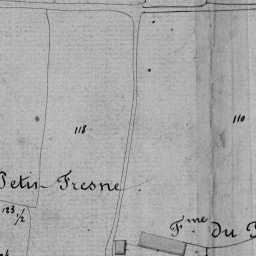 118
110
Petit Fresne
123 1/2
F.me du